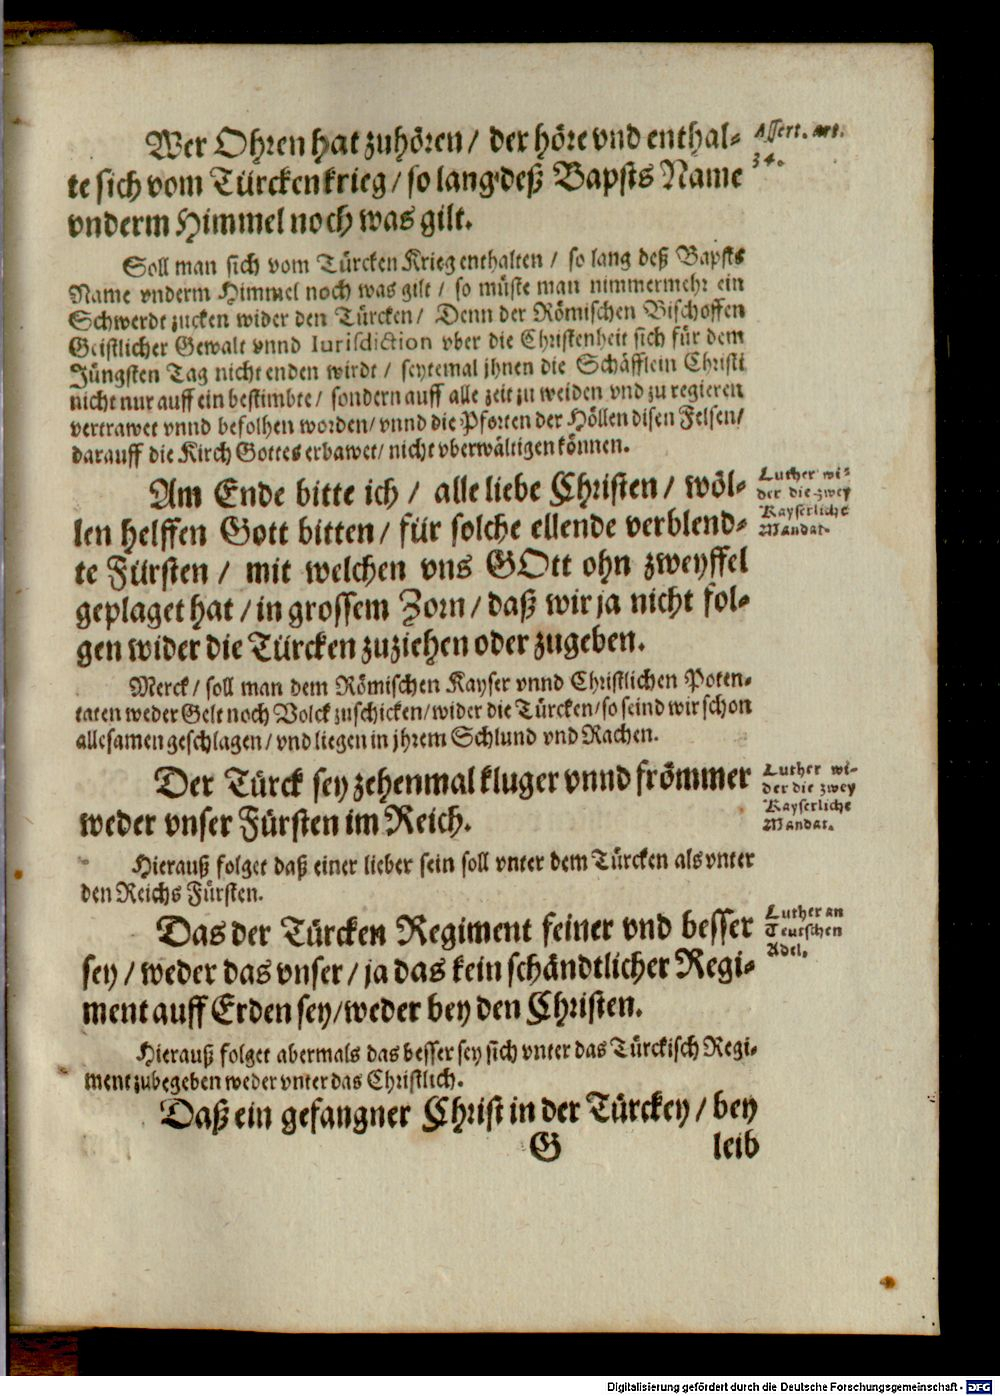 Wer Ohren hat zuhören / der höre vnd enthal-
te sich vom Türckenkrieg / so lang deß Bapsts Name
vnderm Himmel noch was gilt.
Assert. art.
34.
Soll man sich vom Türcken Krieg enthalten / so lang deß Bapsts
Name vnderm Himmel noch was gilt / so müste man nimmermehr ein
Schwerdt zucken wider den Türcken / Denn der Römischen Bischoffen
Geistlicher Gewalt vnnd Iurisdiction vber die Christenheit sich für dem
Jüngsten Tag nicht enden wirdt / seytemal jhnen die Schäfflein Christi
nicht nur auff ein bestimbte / sondern auff alle zeit zu weiden vnd zu regieren
vertrawet vnnd befolhen worden / vnnd die Pforten der Höllen disen Felsen /
darauff die Kirch Gottes erbawet / nicht vberwältigen können.
Am Ende bitte ich / alle liebe Christen / wöl-
len helffen Gott bitten / für solche ellende verblend-
te Fürsten / mit welchen vns GOtt ohn zweyffel
geplaget hat / in grossem Zorn / daß wir ja nicht fol-
gen wider die Türcken zuziehen oder zugeben.
Luther wi-
der die zwey
Kayserliche
Mandat.
Merck / soll man dem Römischen Kayser vnnd Christlichen Poten-
taten weder Gelt noch Volck zuschicken / wider die Türcken / so seind wir schon
alle samen geschlagen / vnd liegen in jhrem Schlund vnd Rachen.
Der Türck sey zehenmal kluger vnnd frömmer
weder vnser Fürsten im Reich.
Luther wi-
der die zwey
Kayserliche
Mandat.
Hierauß folget daß einer lieber sein soll vnter dem Türcken als vnter
den Reichs Fürsten.
Das der Türcken Regiment feiner vnd besser
sey / weder das vnser / ja das kein schändtlicher Regi-
ment auff Erden sey / weder bey den Christen.
Luther an
Teutschen
Adel.
Hierauß folget abermals das besser sey sich vnter das Türckisch Regi-
ment zubegeben weder vnter das Christlich.
Daß ein gefangner Christ in der Türckey / bey
G leib
Digitalisierung gefördert durch die Deutsche Forschungsgemeinschaft - DFG